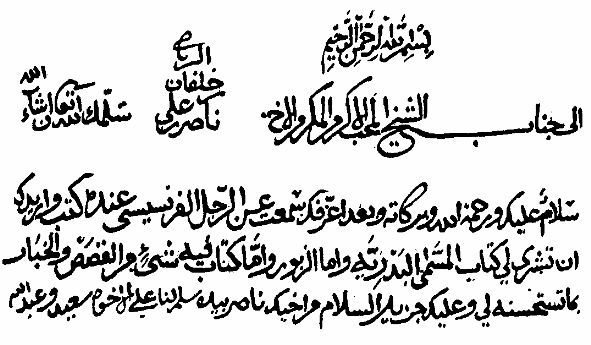 بسم الله الرحمن الرحيم
الى جناب الشيخ المحب الاكرم المكرم الاخ ناصر بن علي خلفان سلمك الله تعالى ان شاء الله
سلام عليكم ورحمة الله وبركاته وبعد اعرفك سمعت عن الرجل الفرنسيسي عنده كتب واريدك
ان تشتري لي كتاب المسمى واما الزبور واما كتاب فيه شيء من القصص والاخبار
بما تستحسنه لي وعليك جزيل السلام من اخيك ناصر بيده سلم لنا على الاخوان سعيد وعبدالله